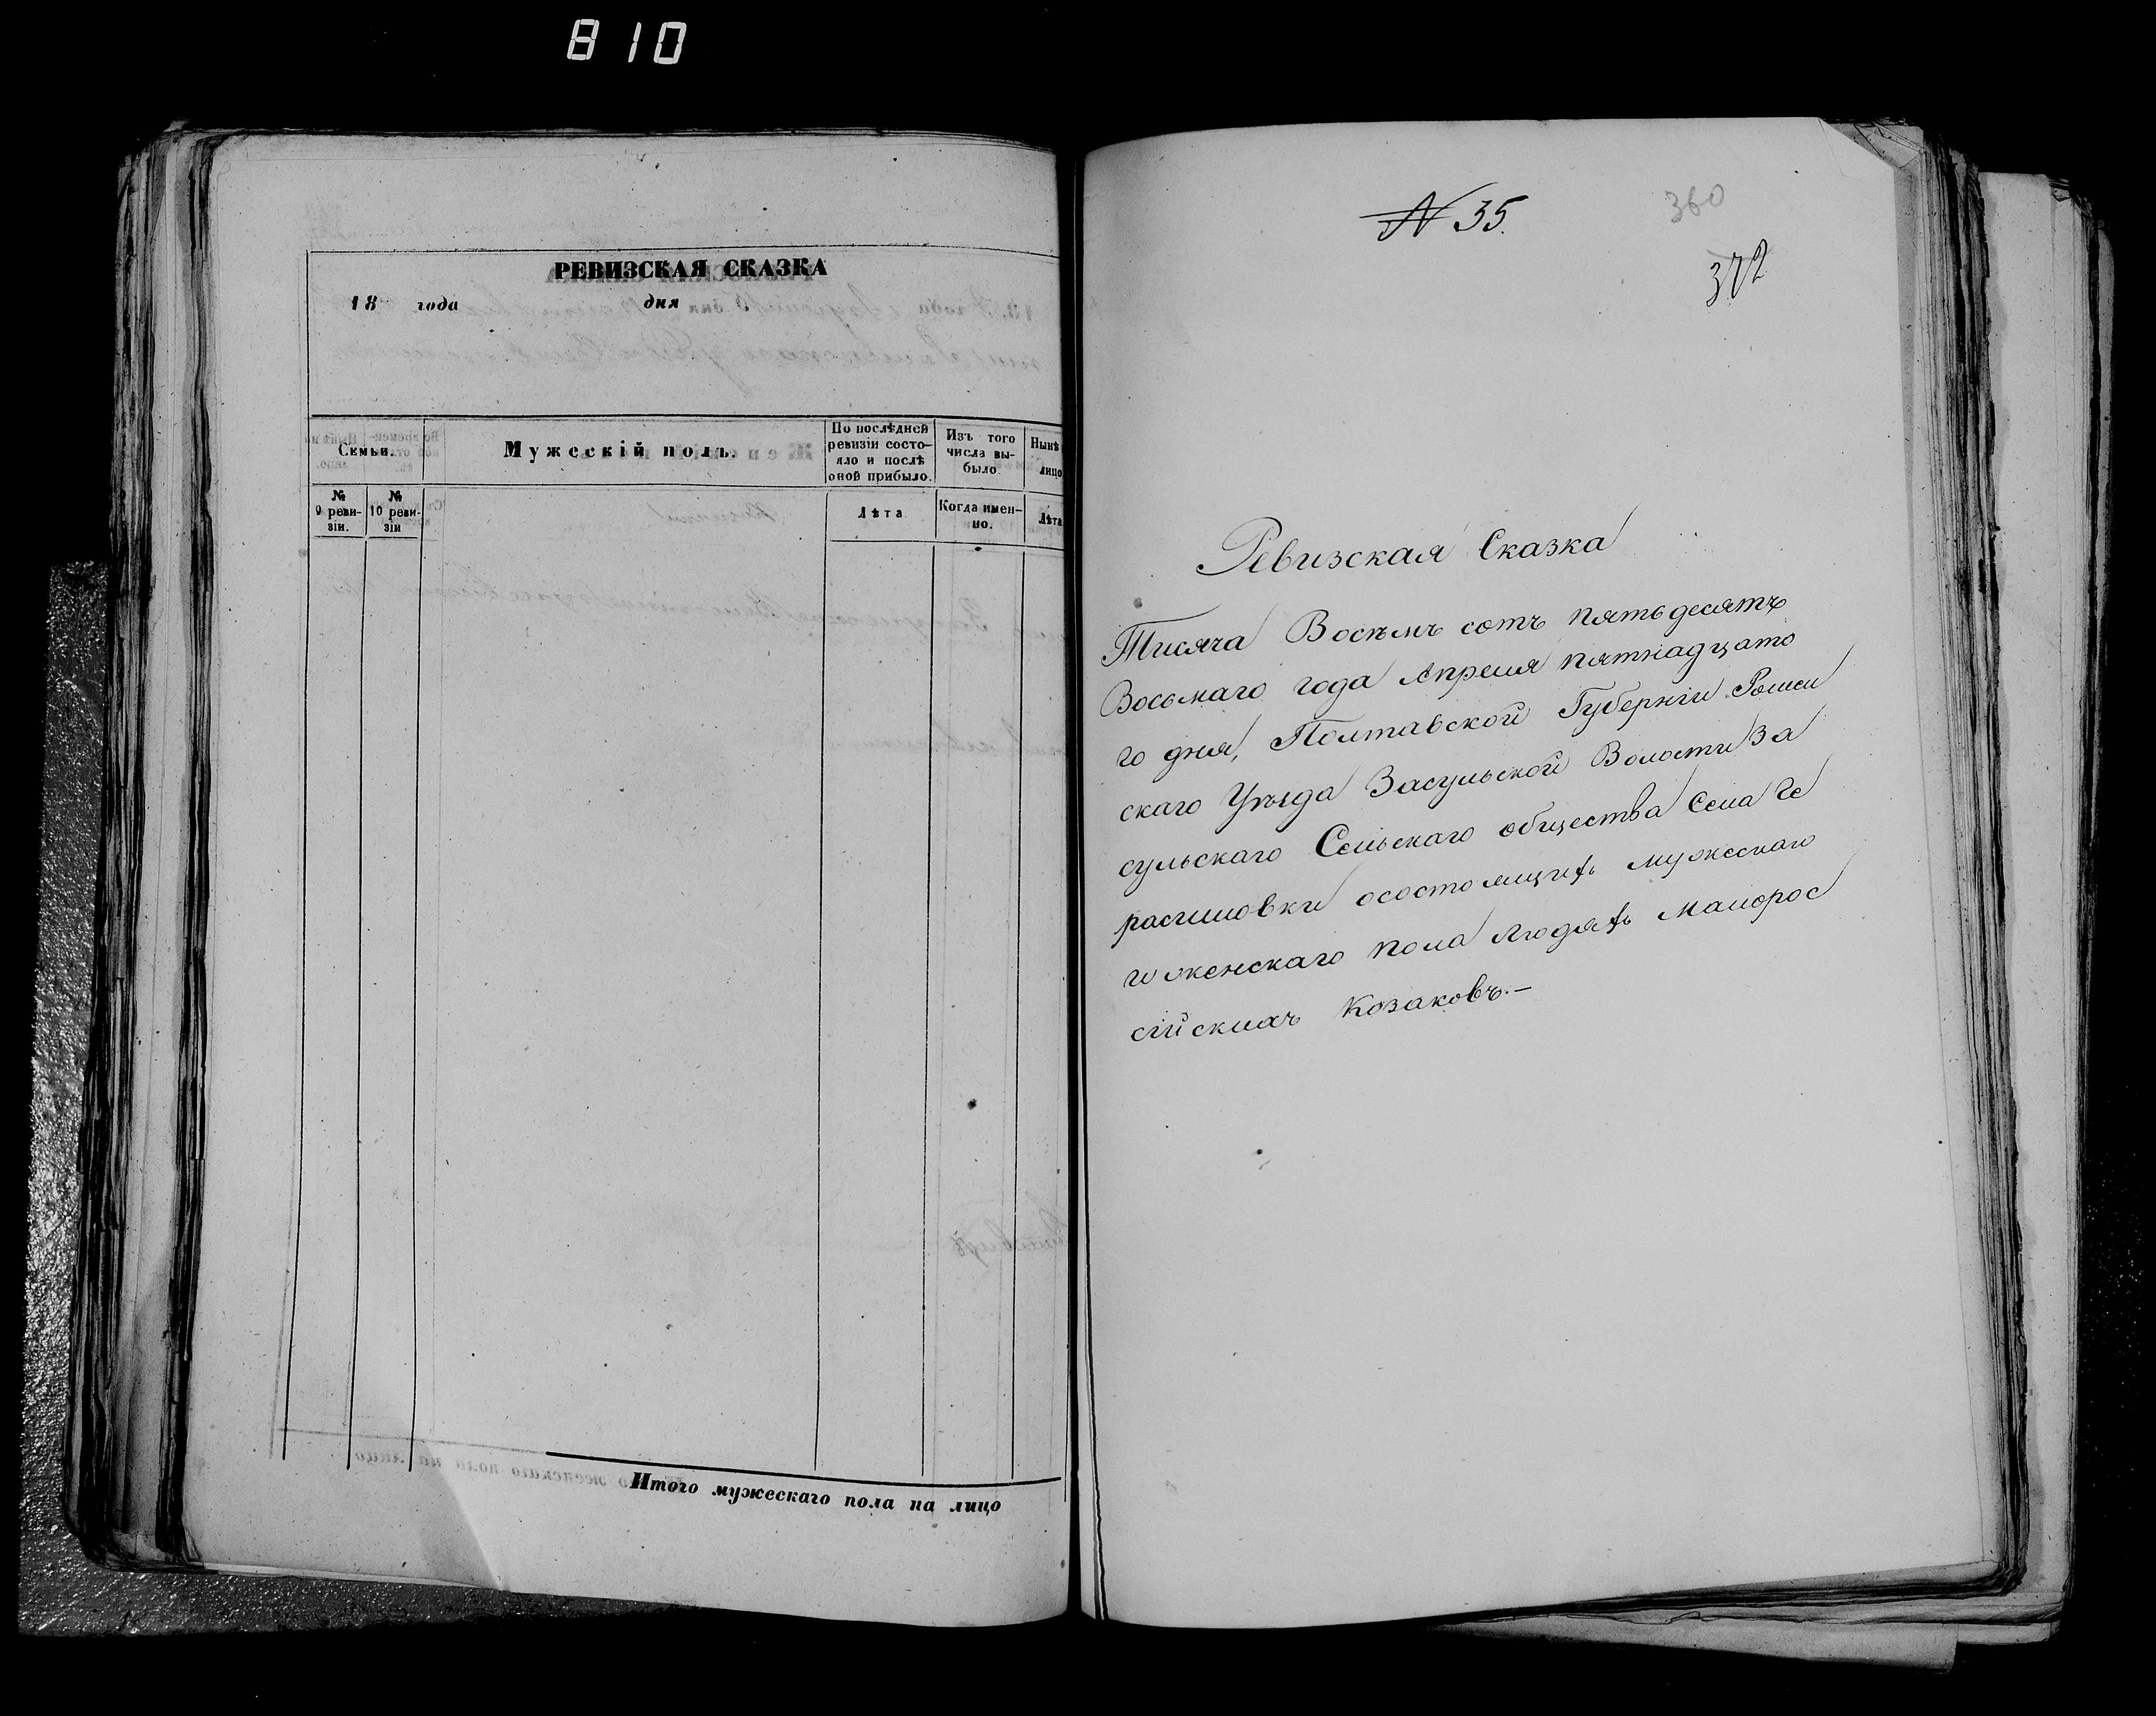 810
РЕВИЗСКАЯ СКАЗКА
18 года дня
Семьи.
Мужескій полъ.
По послѣдней
ревизіи состо-
яло и послѣ
оной прибыло.
Изъ того
числа вы-
было.
Нынѣ
лицо
№
9 реви-
зіи.
№
10 реви-
зіи
Лѣта
Когда имен-
но.
Лѣта
Итого мужескаго пола на лицо
№ 35.
360
372
Ревизская Сказка
Тисяча Восѣмъ сотъ пятьдесятъ
Восьмаго года Апреля пятнадцато
го дня, Полтавской Губерніи Ромен
скаго Уѣзда Засульской Волости За
сульскаго Сельскаго общества Села Ге
расимовки осостоящихъ мужескаго
и женскаго пола людяхъ Малорос
сійскихъ Козаковъ.—